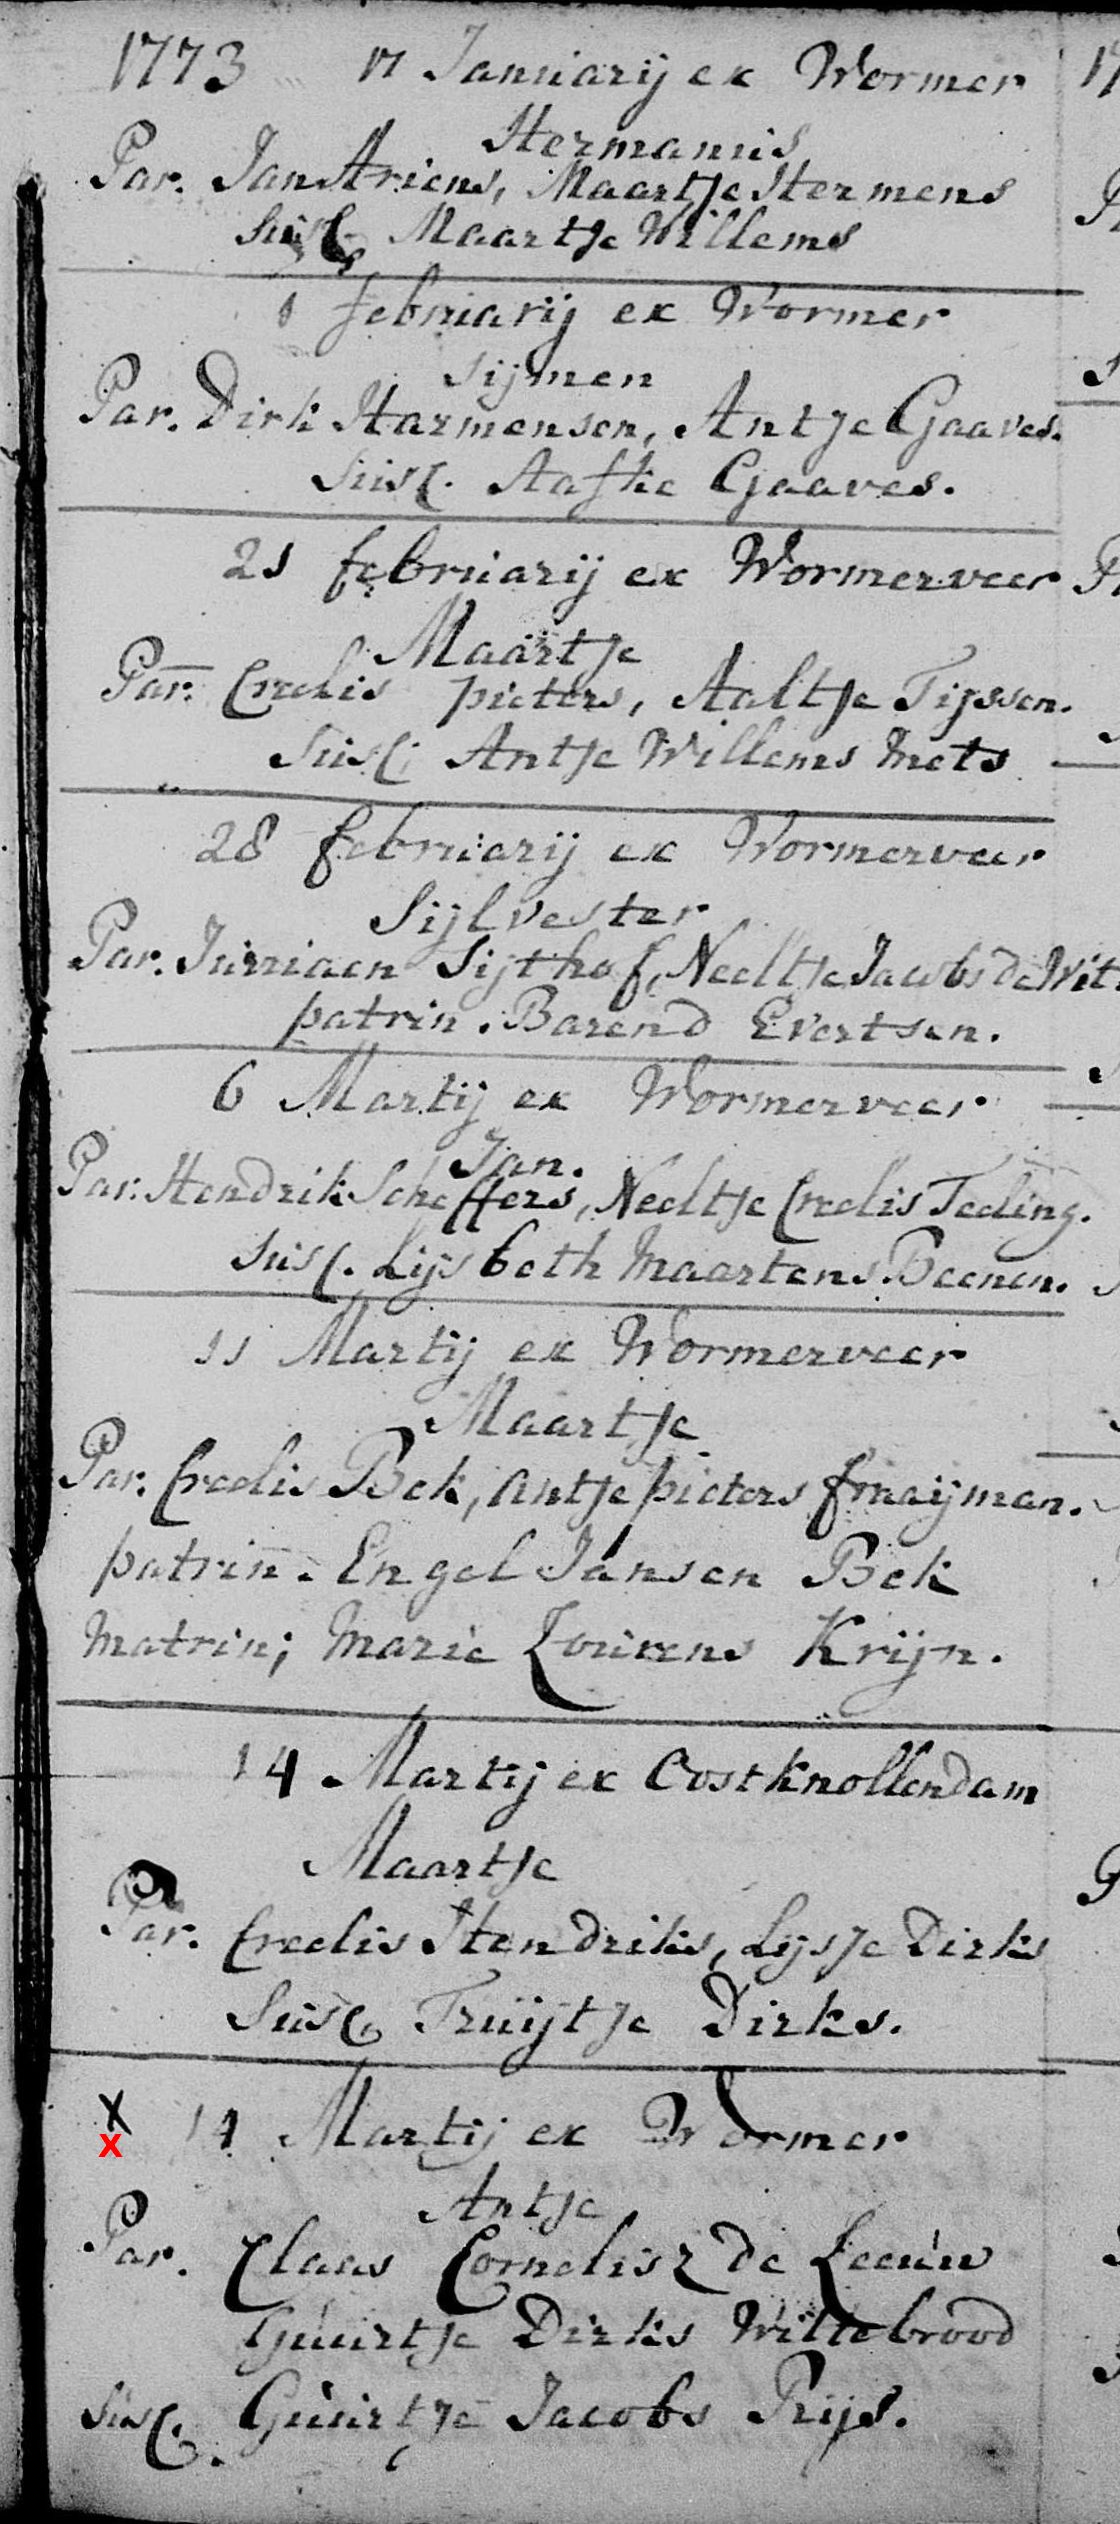 1773 17 Januarij ex Wormer
Hermanus
Par. Jan Ariens, Maartje Hermens
Susc. Maartje Willems
1 februarij ex Wormer
Sijmen
Par. Dirk Harmensen, Antje Gaaves.
Susc. Aafke Gaaves.
21 februarij ex Wormerveer
Maartje
Par. Creelis pieters, Aaltje Tijssen.
Susc. Antje Willems Mets
28 februarij ex Wormerveer
Sijlvester
Par. Jurriaen Sijthof, Neeltje Jacobs de Wit
patrin. Barend Evertsen.
6 Martij ex Wormerveer
Jan.
Par. Hendrik Scheffers, Neeltje Creelis Teeling.
Susc. Lijsbeth Maartens Beenen.
11 Martij ex Wormerveer
Maartje
Par. Creelis Bek, Antje pieters fraaijman.
patrin. Engel Jansen Bek
Matrin; Marie Lourens Krijn.
14 Martij ex Oostknollendam
Maartje
Par. Creelis Hendriks, Lijsje Dirks
Susc. Truijtje Dirks.
X 14 Martij ex Wormer
X
Antje
Par. Claas Cornelisz de Leeuw
Guurtje Dirks Wittebrood
Susc. Guurtje Jacobs Prijs.